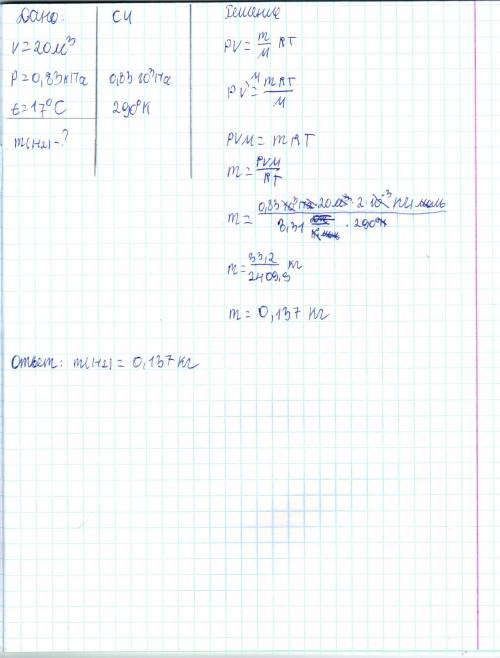 Дано:
СИ
V = 20 м³
P = 0,83 кПа
0,83·10³ Па
t = 17°C
290°К
m(H2) - ?
Решение
PV = m/M RT
PV = mRT/M
PVM = mRT
m = PVM/RT
m = 0,83·10³ Па·20 м³·2·10⁻³ кг/моль
8,31 · 290К
m = 33,2/2409,9 кг
m = 0,137 кг
Ответ: m(H2) = 0,137 кг